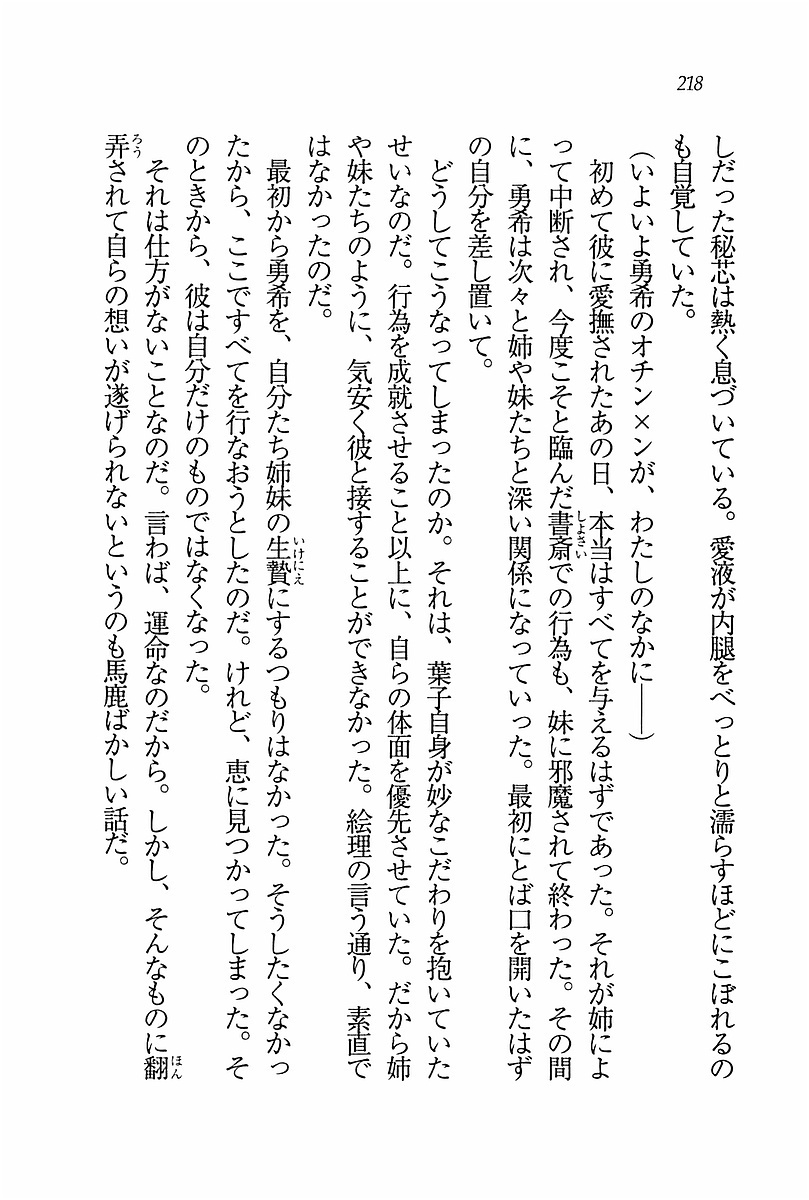 218
しだった秘芯は熱く息づいている。愛液が内腿をべっとりと濡らすほどにこぼれるの
も自覚していた。
(いよいよ勇希のオチン×ンが、わたしのなかに――)
初めて彼に愛撫されたあの日、本当はすべてを与えるはずであった。それが姉によ
しよさい
って中断され、今度こそと臨んだ書斎での行為も、妹に邪魔されて終わった。その間
に、勇希は次々と姉や妹たちと深い関係になっていった。最初にとば口を開いたはず
の自分を差し置いて。
どうしてこうなってしまったのか。それは、葉子自身が妙なこだわりを抱いていた
せいなのだ。行為を成就させること以上に、自らの体面を優先させていた。だから姉
や妹たちのように、気安く彼と接することができなかった。絵理の言う通り、素直で
はなかったのだ。
いけにえ
最初から勇希を、自分たち姉妹の生贄にするつもりはなかった。そうしたくなかっ
たから、ここですべてを行なおうとしたのだ。けれど、恵に見つかってしまった。そ
のときから、彼は自分だけのものではなくなった。
ほん
それは仕方がないことなのだ。言わば、運命なのだから。しかし、そんなものに翻
ろう
弄されて自らの想いが遂げられないというのも馬鹿ばかしい話だ。